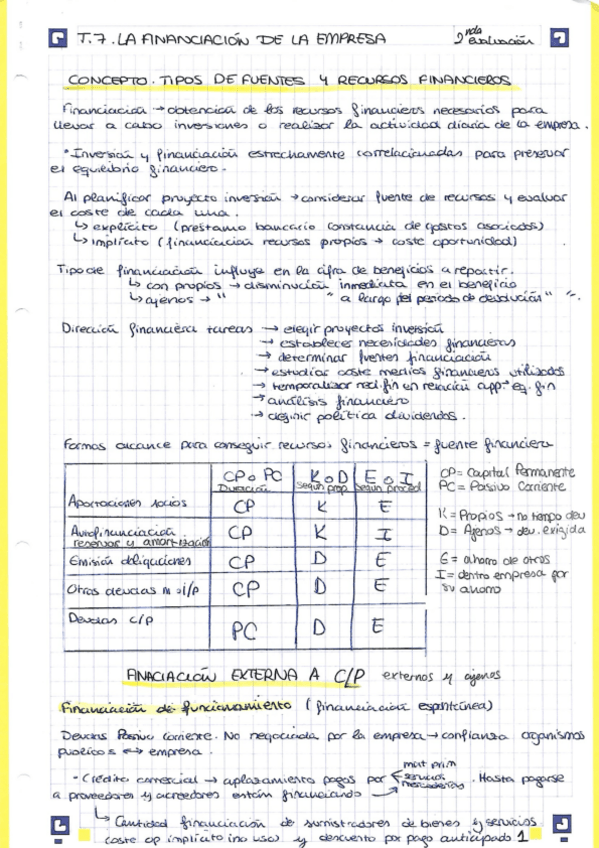 T.7. LA FINANCIACIÓN DE LA EMPRESA 2nda evaluación
CONCEPTO. TIPOS DE FUENTES Y RECURSOS FINANCIEROS
Financiación → obtención de los recursos financieros necesarios para
llevar a cabo inversiones o realizar la actividad diaria de la empresa.
• Inversión y financiación estrechamente correlacionadas para preservar
el equilibrio financiero.
Al planificar proyecto inversión → considerar fuente de recursos y evaluar
el coste de cada una.
↳ explícito (préstamo bancario constancia de gastos asociados)
↳ implícito (financiación recursos propios → coste oportunidad)
Tipo de financiación influye en la cifra de beneficios a repartir.
↳ con propios → disminución inmediata en el beneficio
↳ ajenos → " " a largo del período de devolución" ".
Dirección financiera tareas → elegir proyectos inversión
→ establecer necesidades financieras
→ determinar fuentes financiación
→ estudiar coste medios financieros utilizados
→ temporalizar rec. fin en relación app → eq. fin
→ análisis financiero
→ definir política dividendos.
Formas alcance para conseguir recursos financieros = fuente financiera
CP o PC K o D E o I
Duración Según prop. Según proced
Aportaciones socios CP K E
Autofinanciación CP K I
reservas y amortización
Emisión obligaciones CP D E
Otras deudas m o l/p CP D E
Deudas c/p PC D E
CP = Capital Permanente
PC = Pasivo Corriente
K = Propios → no tiempo dev
D = Ajenos → dev. exigida
E = ahorro de otros
I = dentro empresa por
su ahorro
ANACIACIÓN EXTERNA A C/P externos y ajenos
Financiación de funcionamiento (financiación espontánea)
Deudas Pasivo corriente. No negociada por la empresa → confianza organismos
públicos ↔ empresa.
• Crédito comercial → aplazamiento pagos por mat prim
servicios
mercaderías. Hasta pagarse
a proveedores y acreedores están financiando
↳ Cantidad financiación de suministradores de bienes y servicios
coste op implícito (no uso) y descuento por pago anticipado 1